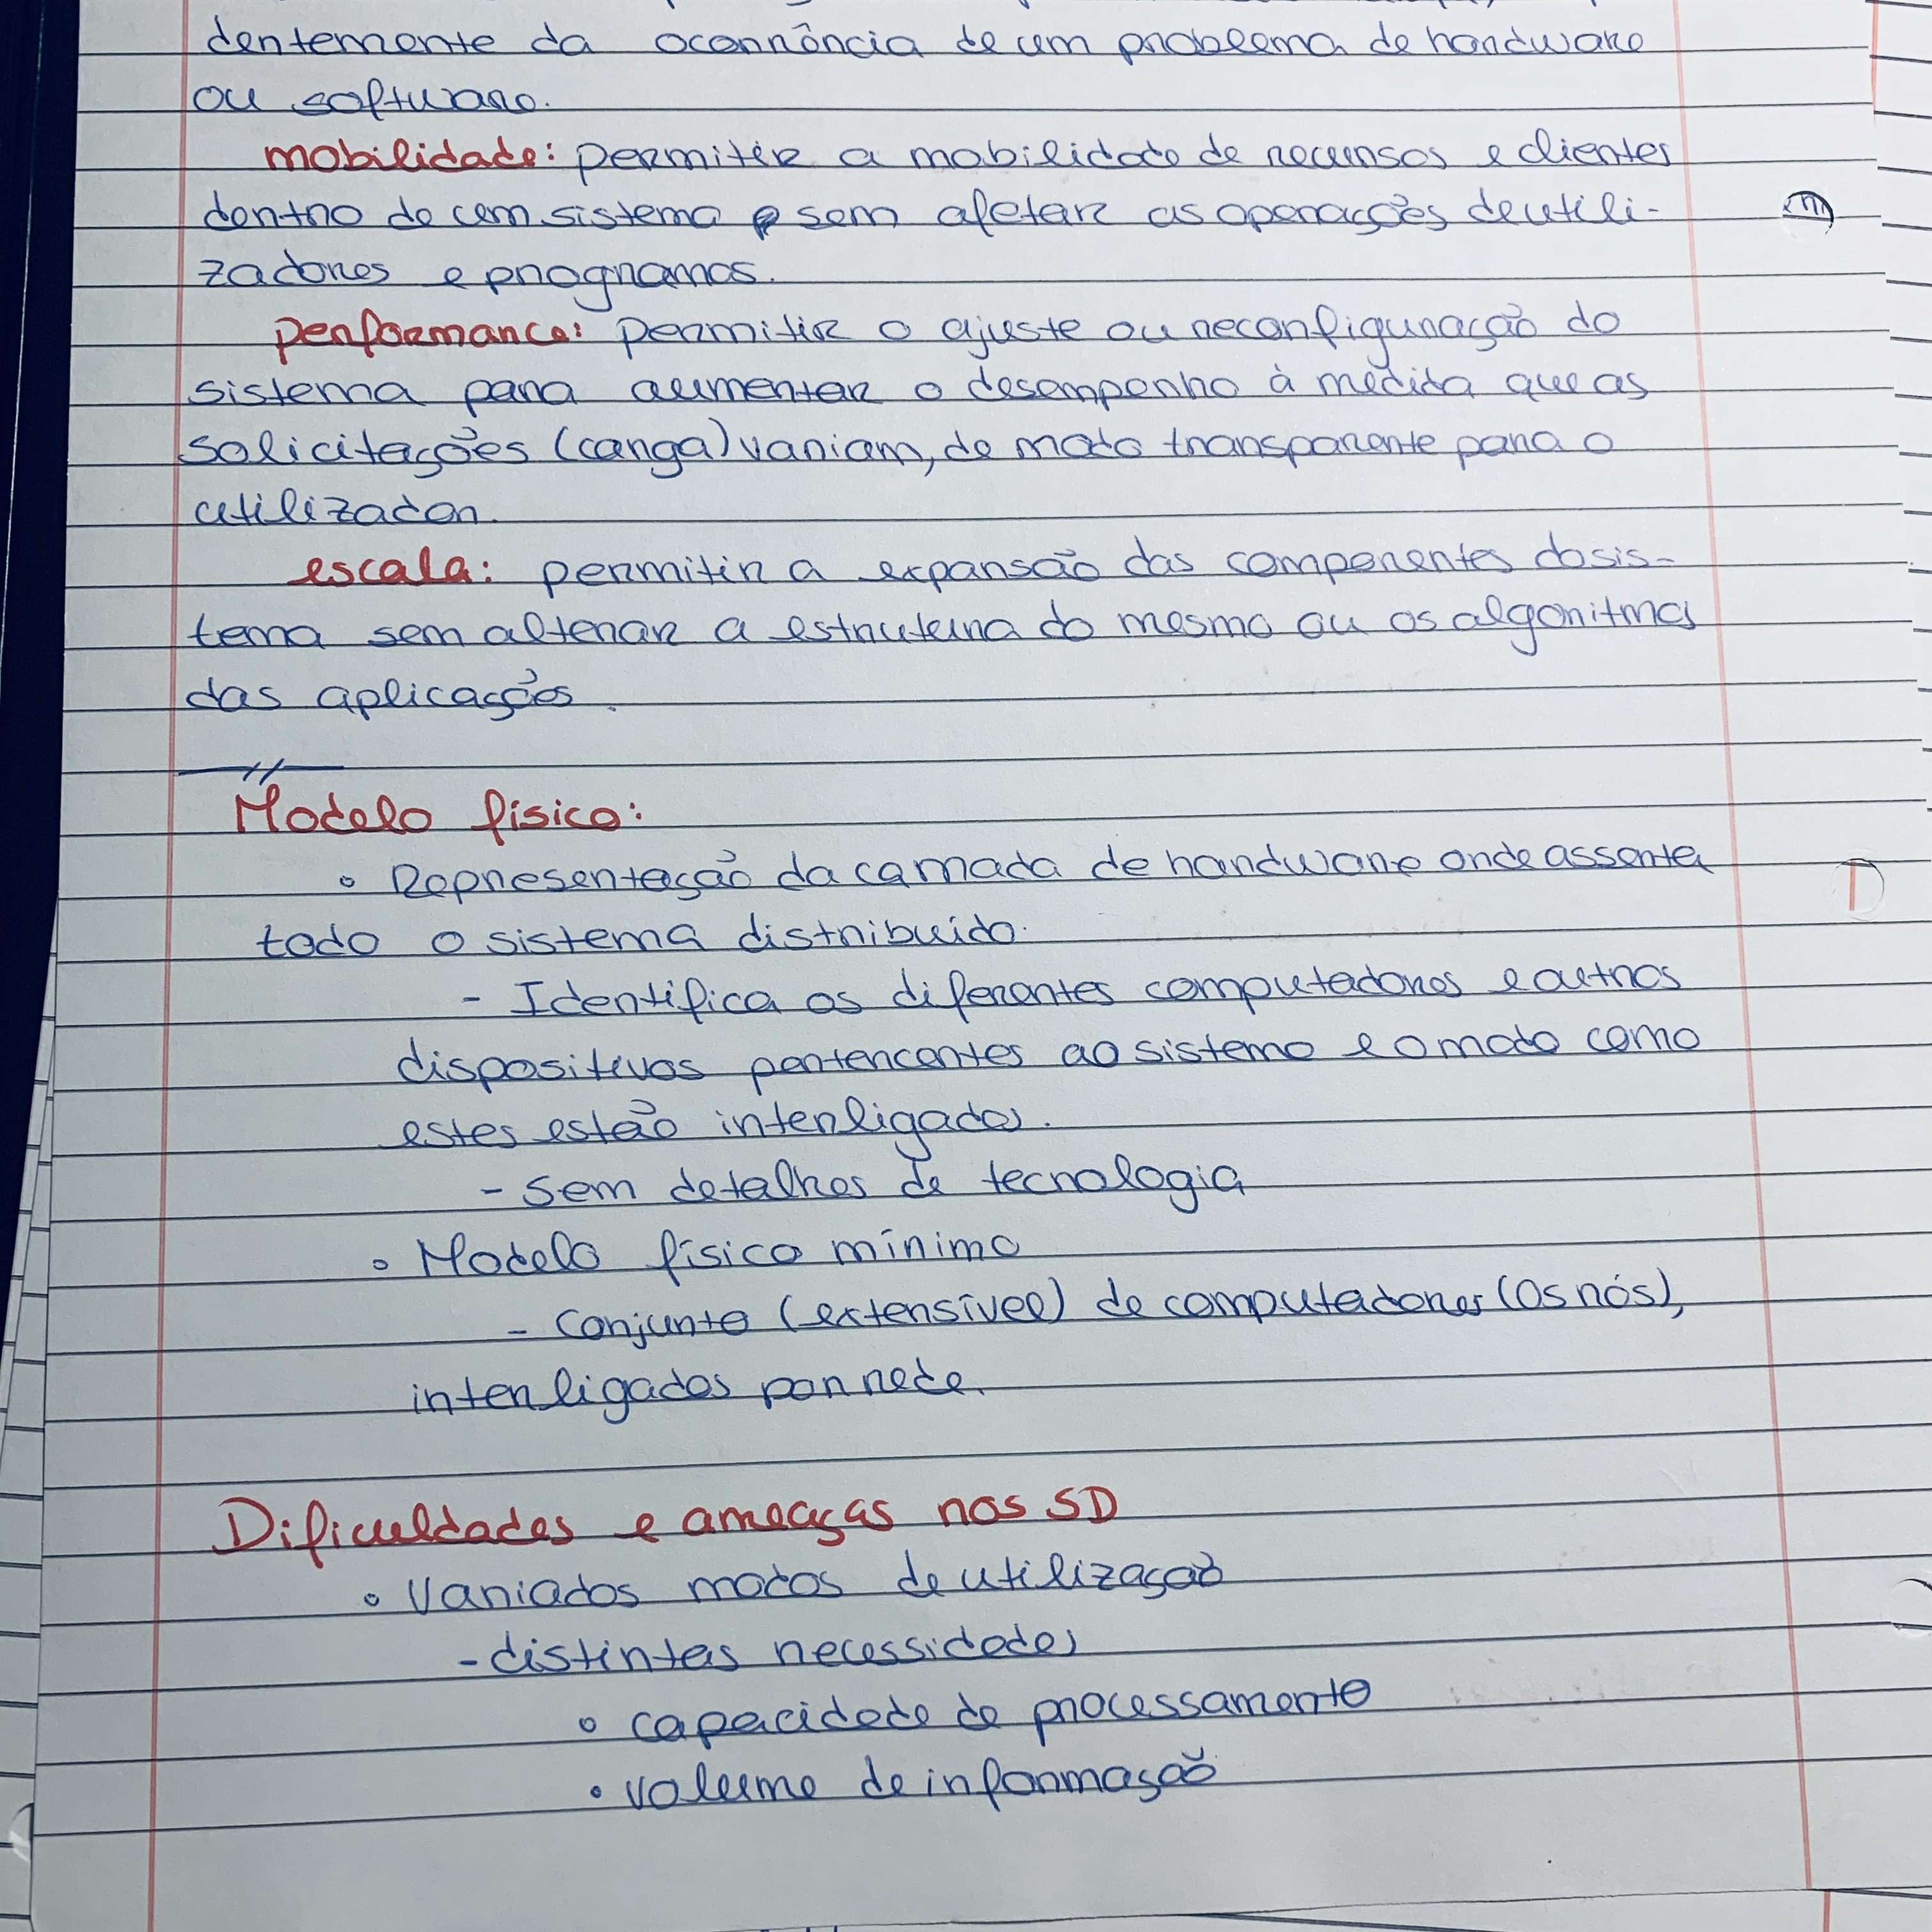 dentemente da ocorrência de um problema de hardware
ou software.
mobilidade: permitir a mobilidade de recursos e clientes
dentro de um sistema sem afetar as operações de utili-
zadores e programas.
performance: permitir o ajuste ou reconfiguração do
sistema para aumentar o desempenho à medida que as
solicitações (carga) variam, de modo transparente para o
utilizador.
escala: permitir a expansão das componentes do sis-
tema sem alterar a estrutura do mesmo ou os algoritmos
das aplicações.
Modelo físico:
• Representação da camada de hardware onde assenta
todo o sistema distribuído.
- Identifica os diferentes computadores e outros
dispositivos pertencentes ao sistema e o modo como
estes estão interligados.
- sem detalhes de tecnologia
• Modelo físico mínimo
- Conjunto (extensível) de computadores (os nós),
interligados por rede.
Dificuldades e ameaças nos SD
• Variados modos de utilização
- distintas necessidades
• capacidade de processamento
• volume de informação